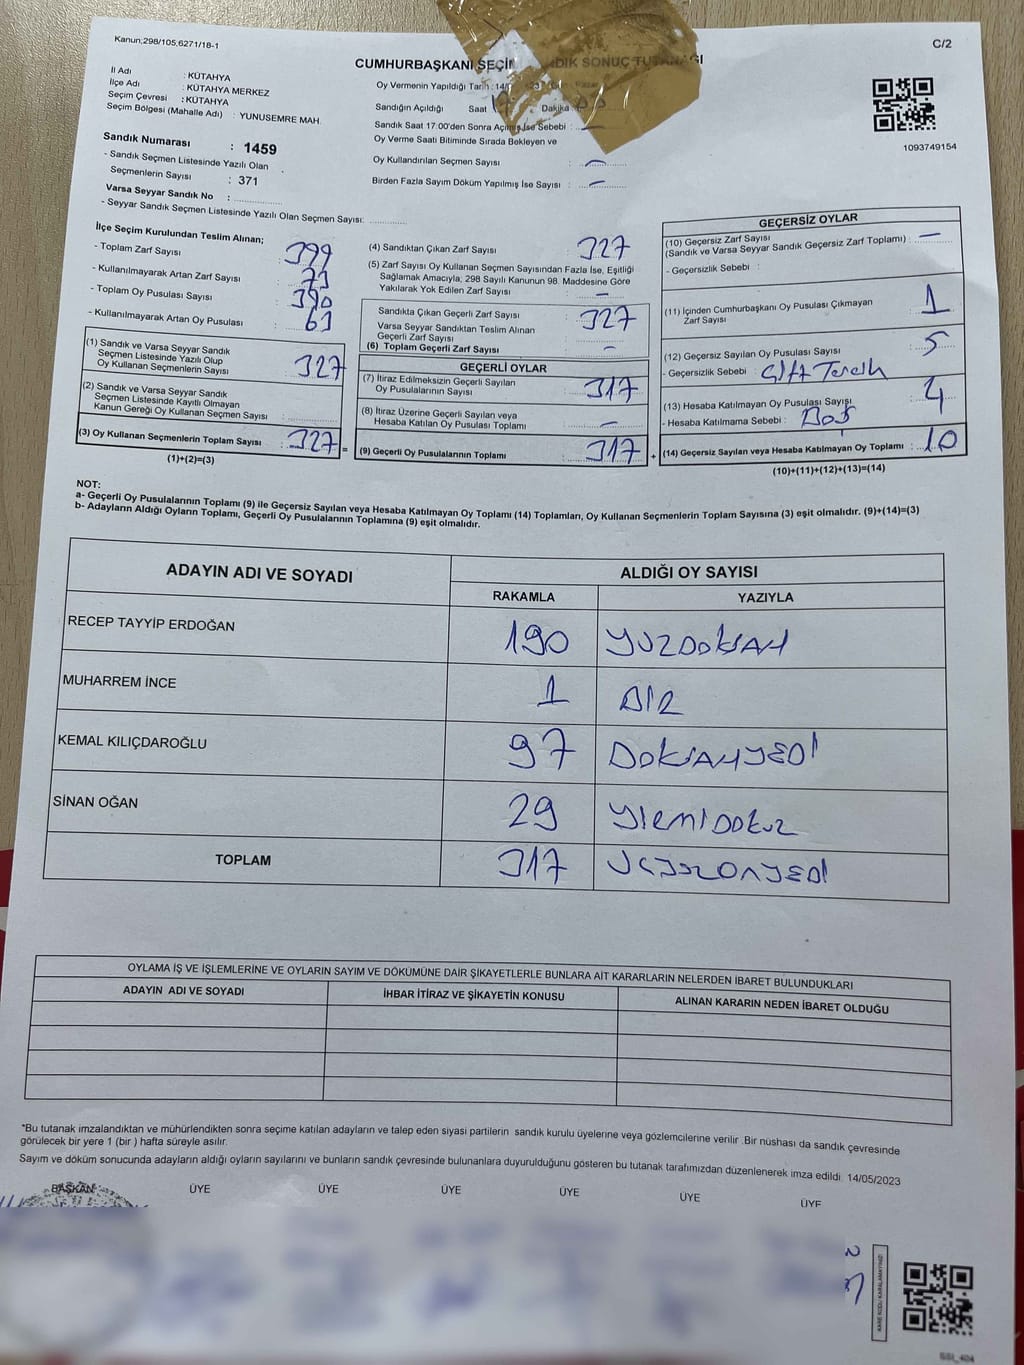 Kanun;298/105,6271/18-1
C/2
CUMHURBAŞKANI SEÇİM SANDIK SONUÇ TUTANAĞI
İl Adı : KÜTAHYA
İlçe Adı : KÜTAHYA MERKEZ
Seçim Çevresi : KÜTAHYA
Seçim Bölgesi (Mahalle Adı) : YUNUSEMRE MAH.
Oy Vermenin Yapıldığı Tarih : 14/
Sandığın Açıldığı Saat Dakika
Sandık Saat 17:00'den Sonra Açılmış İse Sebebi :
Oy Verme Saati Bitiminde Sırada Bekleyen ve
Oy Kullandırılan Seçmen Sayısı : —
Birden Fazla Sayım Döküm Yapılmış İse Sayısı : —
1093749154
Sandık Numarası : 1459
- Sandık Seçmen Listesinde Yazılı Olan
Seçmenlerin Sayısı : 371
Varsa Seyyar Sandık No :
- Seyyar Sandık Seçmen Listesinde Yazılı Olan Seçmen Sayısı:
İlçe Seçim Kurulundan Teslim Alınan;
- Toplam Zarf Sayısı : 399
- Kullanılmayarak Artan Zarf Sayısı :
- Toplam Oy Pusulası Sayısı : 390
- Kullanılmayarak Artan Oy Pusulası : 63
(1) Sandık ve Varsa Seyyar Sandık
Seçmen Listesinde Yazılı Olup
Oy Kullanan Seçmenlerin Sayısı : 327
(2) Sandık ve Varsa Seyyar Sandık
Seçmen Listesinde Kayıtlı Olmayan
Kanun Gereği Oy Kullanan Seçmen Sayısı :
(3) Oy Kullanan Seçmenlerin Toplam Sayısı : 327 =
(1)+(2)=(3)
(4) Sandıktan Çıkan Zarf Sayısı : 327
(5) Zarf Sayısı Oy Kullanan Seçmen Sayısından Fazla İse, Eşitliği
Sağlamak Amacıyla; 298 Sayılı Kanunun 98. Maddesine Göre
Yakılarak Yok Edilen Zarf Sayısı : —
Sandıkta Çıkan Geçerli Zarf Sayısı : 327
Varsa Seyyar Sandıktan Teslim Alınan
Geçerli Zarf Sayısı :
(6) Toplam Geçerli Zarf Sayısı : —
GEÇERLİ OYLAR
(7) İtiraz Edilmeksizin Geçerli Sayılan
Oy Pusulalarının Sayısı : 317
(8) İtiraz Üzerine Geçerli Sayılan veya
Hesaba Katılan Oy Pusulası Toplamı : —
(9) Geçerli Oy Pusulalarının Toplamı : 317 +
GEÇERSİZ OYLAR
(10) Geçersiz Zarf Sayısı
(Sandık ve Varsa Seyyar Sandık Geçersiz Zarf Toplamı) : —
- Geçersizlik Sebebi :
(11) İçinden Cumhurbaşkanı Oy Pusulası Çıkmayan
Zarf Sayısı : 1
(12) Geçersiz Sayılan Oy Pusulası Sayısı : 5
- Geçersizlik Sebebi : Çift Tercih
(13) Hesaba Katılmayan Oy Pusulası Sayısı : 4
- Hesaba Katılmama Sebebi : Boş
(14) Geçersiz Sayılan veya Hesaba Katılmayan Oy Toplamı : 10
(10)+(11)+(12)+(13)=(14)
NOT:
a- Geçerli Oy Pusulalarının Toplamı (9) ile Geçersiz Sayılan veya Hesaba Katılmayan Oy Toplamı (14) Toplamları, Oy Kullanan Seçmenlerin Toplam Sayısına (3) eşit olmalıdır. (9)+(14)=(3)
b- Adayların Aldığı Oyların Toplamı, Geçerli Oy Pusulalarının Toplamına (9) eşit olmalıdır.
ADAYIN ADI VE SOYADI
ALDIĞI OY SAYISI
RAKAMLA YAZIYLA
RECEP TAYYİP ERDOĞAN 190 YÜZDOKSAN
MUHARREM İNCE 1 BİR
KEMAL KILIÇDAROĞLU 97 DOKSANYEDİ
SİNAN OĞAN 29 YİRMİDOKUZ
TOPLAM 317 ÜÇYÜZONYEDİ
OYLAMA İŞ VE İŞLEMLERİNE VE OYLARIN SAYIM VE DÖKÜMÜNE DAİR ŞİKAYETLERLE BUNLARA AİT KARARLARIN NELERDEN İBARET BULUNDUKLARI
ADAYIN ADI VE SOYADI İHBAR İTİRAZ VE ŞİKAYETİN KONUSU ALINAN KARARIN NEDEN İBARET OLDUĞU
*Bu tutanak imzalandıktan ve mühürlendikten sonra seçime katılan adayların ve talep eden siyasi partilerin sandık kurulu üyelerine veya gözlemcilerine verilir. Bir nüshası da sandık çevresinde
görülecek bir yere 1 (bir ) hafta süreyle asılır.
Sayım ve döküm sonucunda adayların aldığı oyların sayılarını ve bunların sandık çevresinde bulunanlara duyurulduğunu gösteren bu tutanak tarafımızdan düzenlenerek imza edildi. 14/05/2023
BAŞKAN ÜYE ÜYE ÜYE ÜYE ÜYE ÜYE
KARE KODU KARALAMAYINIZ!